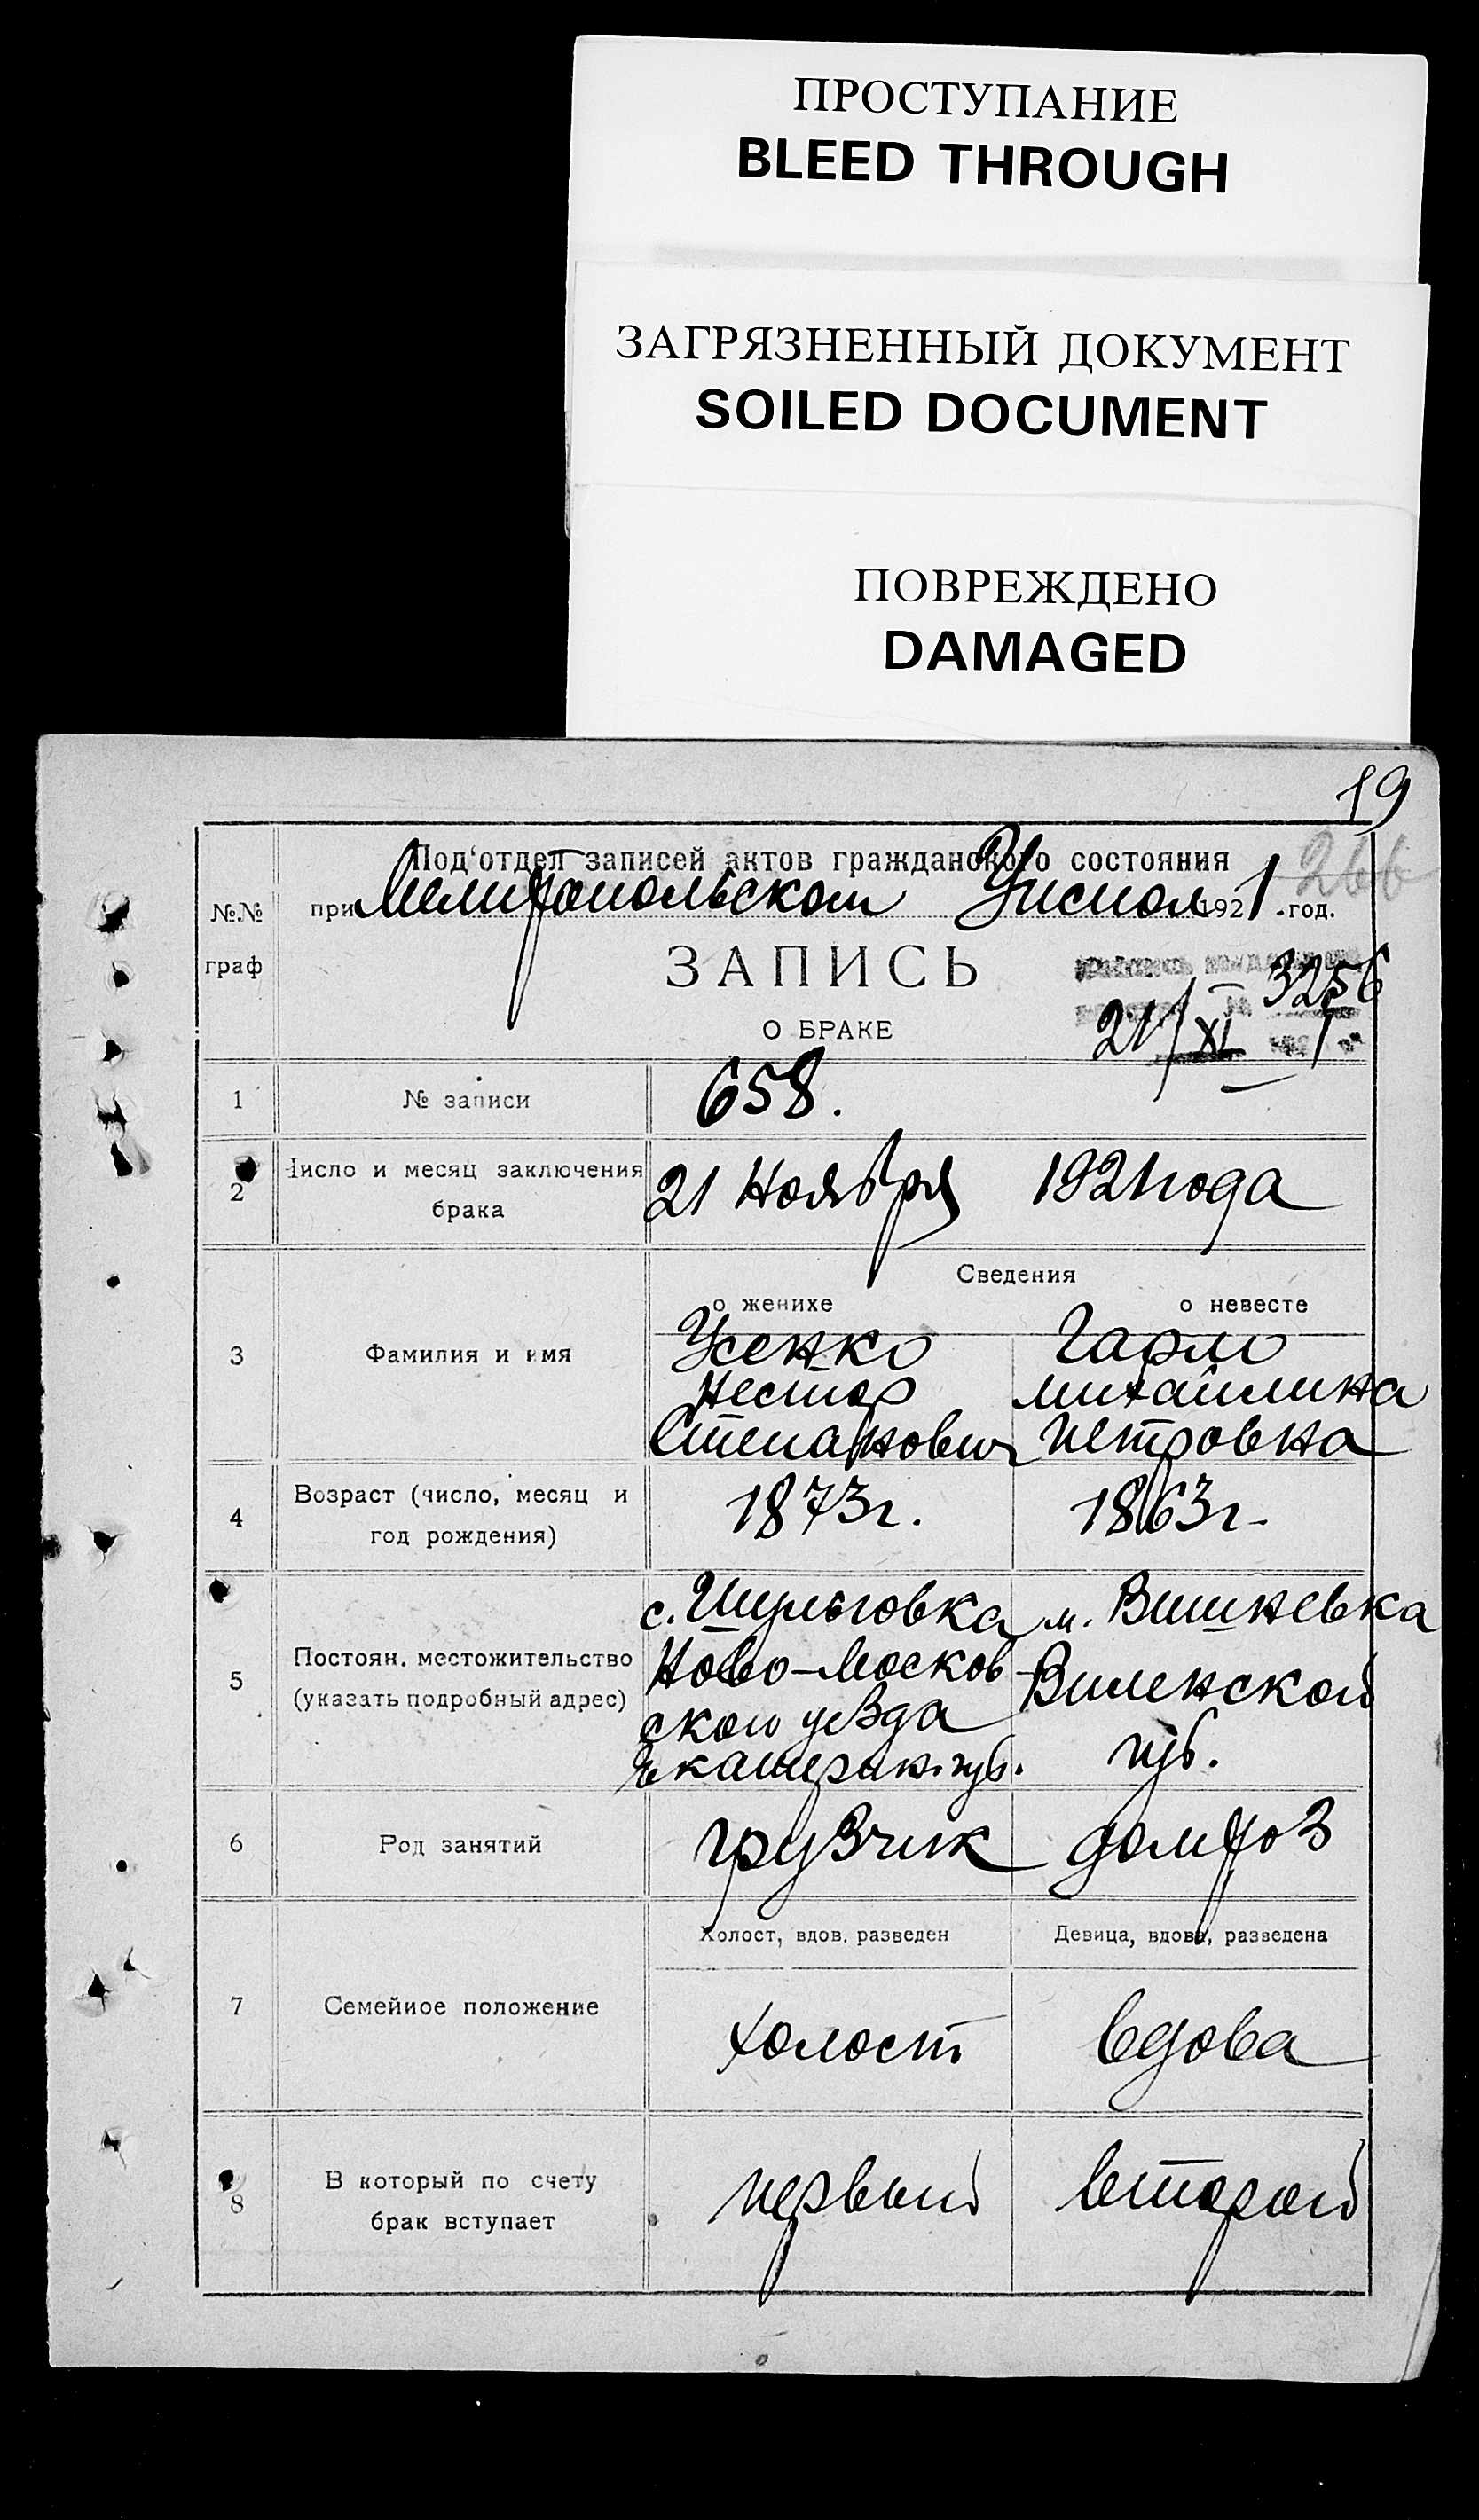 ПРОСТУПАНИЕ
BLEED THROUGH
ЗАГРЯЗНЕННЫЙ ДОКУМЕНТ
SOILED DOCUMENT
ПОВРЕЖДЕНО
DAMAGED
19
266
Под'отдел записей актов гражданского состояния
№№ граф
при Мелитопольском Уисполк 1921 год.
ЗАПИСЬ
О БРАКЕ
3256
21/XI 1
1 № записи 658.
2 Число и месяц заключения брака 21 Ноября 1921 года
Сведения
о женихе о невесте
3 Фамилия и имя
Усенко
Нестор
Степанович
Гарло
Михайлина
Петровна
4 Возраст (число, месяц и год рождения) 1873г. 1863г-
5 Постоян. местожительство
(указать подробный адрес)
с. Шульговка
Ново-Москов
ской уезда
Екатерин. губ.
м. Вишневка
Виленской
губ.
6 Род занятий грузчик домхоз
Холост, вдов. разведен Девица, вдова, разведена
7 Семейное положение холост вдова
8 В который по счету
брак вступает
первый второй